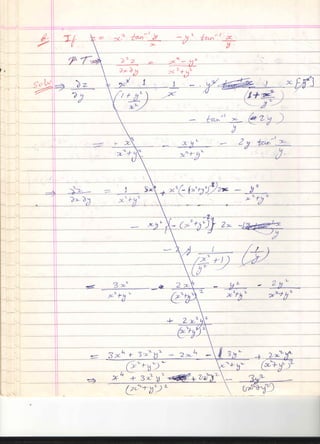 6. If z = x² tan⁻¹ y/x - y² tan⁻¹ x/y
P T ∂²z/∂x∂y = x² - y² / x² + y²
Soln: ⇒ ∂z/∂y = x² · 1/(1 + y²/x²) · 1/x - y² · 1/(1 + x²/y²) · x
- tan⁻¹ x/y (2y)
= x³/x²+y² + xy²/x²+y² - 2y tan⁻¹ x/y
⇒ ∂²z/∂x∂y = 1/x²+y² 3x² + x³(-(x²+y²)⁻²)2x - y²/x²+y²
- xy² {-(x²+y²)⁻²} 2x
- 2y 1/(x²/y² + 1) (1/y)
= 3x²/x²+y² - 2x⁴/(x²+y²)² - y²/x²+y² - 2y²/x²+y²
+ 2x²y²/(x²+y²)²
= 3x⁴ + 3x²y² - 2x⁴/(x²+y²)² - 3y²/x²+y² + 2x²y²/(x²+y²)²
⇒ x⁴ + 3x²y² + 2x²y²/(x²+y²)² - 3y²/(x²+y²)